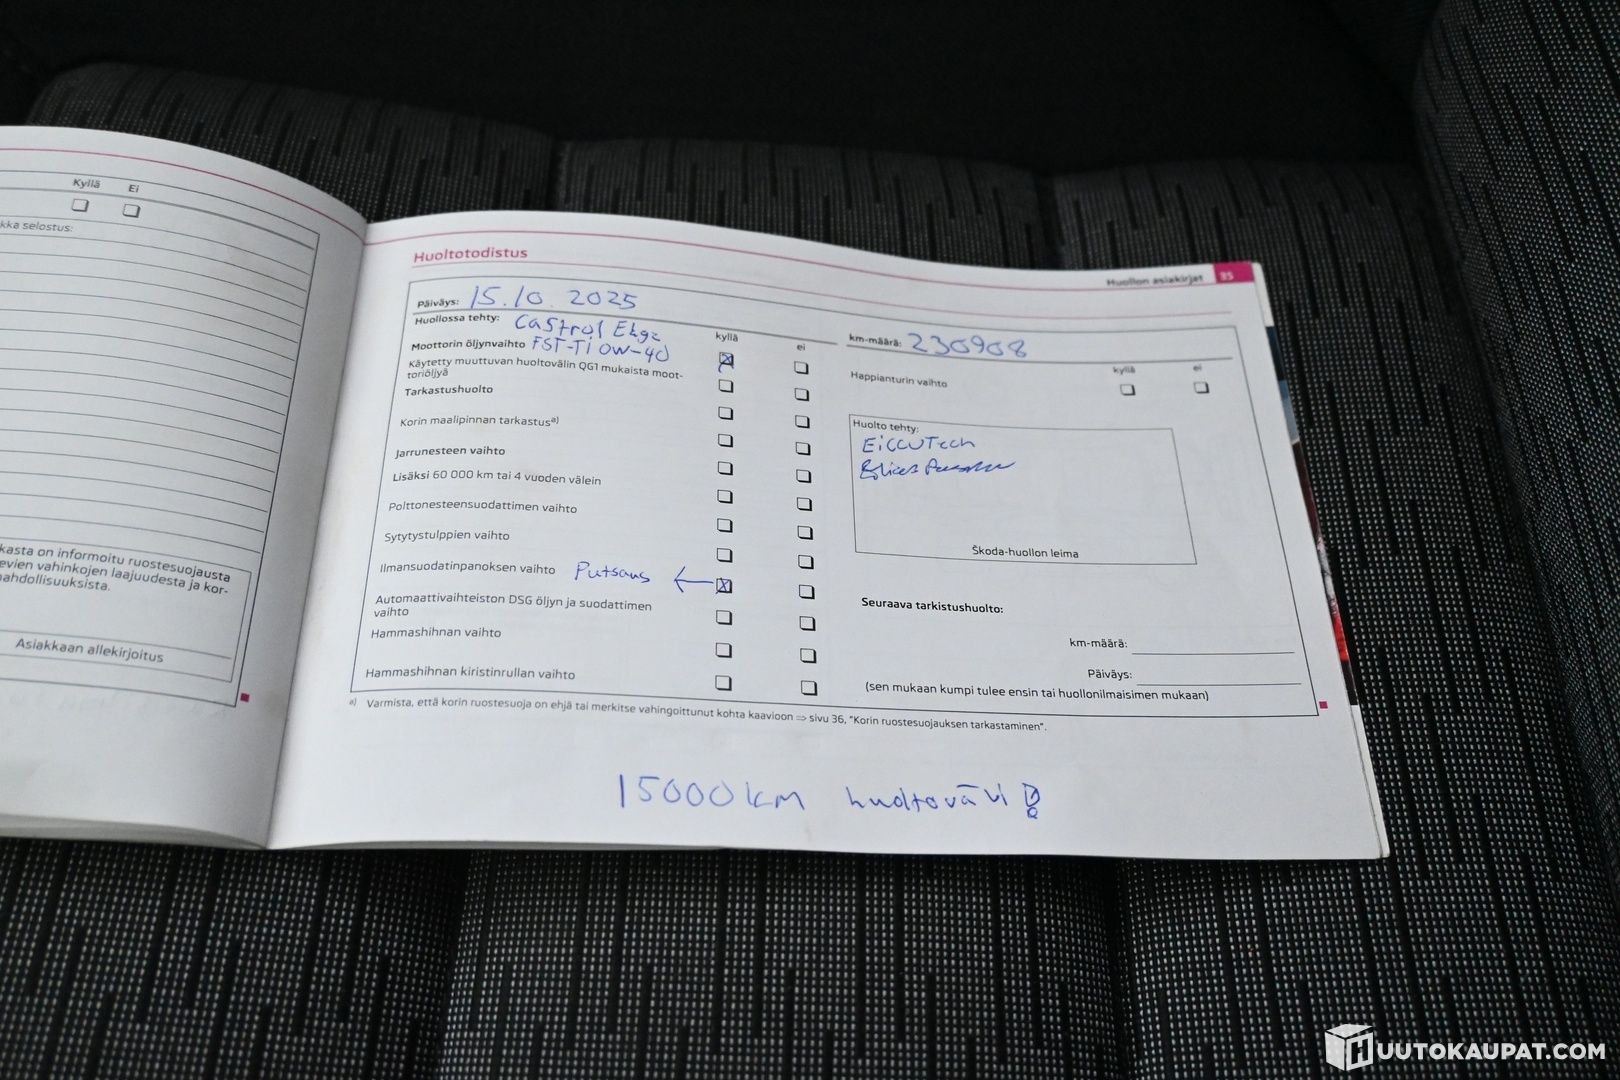 Kyllä Ei
kka selostus:
kasta on informoitu ruostesuojausta
evien vahinkojen laajuudesta ja kor-
mahdollisuuksista.
Asiakkaan allekirjoitus
Huoltotodistus
Huollon asiakirjat 35
Päiväys: 15.10.2025
Huollossa tehty: Castrol
kyllä ei
Moottorin öljynvaihto FST-Ti 0W-40
Käytetty muuttuvan huoltovälin QG1 mukaista moot-
toriöljyä
Tarkastushuolto
Korin maalipinnan tarkastusa)
Jarrunesteen vaihto
Lisäksi 60 000 km tai 4 vuoden välein
Polttonesteensuodattimen vaihto
Sytytystulppien vaihto
Ilmansuodatinpanoksen vaihto Putsaus
Automaattivaihteiston DSG öljyn ja suodattimen
vaihto
Hammashihnan vaihto
Hammashihnan kiristinrullan vaihto
km-määrä: 230908
kyllä ei
Happianturin vaihto
Huolto tehty:
EiccuTech
Škoda-huollon leima
Seuraava tarkistushuolto:
km-määrä:
Päiväys:
(sen mukaan kumpi tulee ensin tai huollonilmaisimen mukaan)
a) Varmista, että korin ruostesuoja on ehjä tai merkitse vahingoittunut kohta kaavioon ⇒ sivu 36, "Korin ruostesuojauksen tarkastaminen".
15000 km huoltoväli
HUUTOKAUPAT.COM